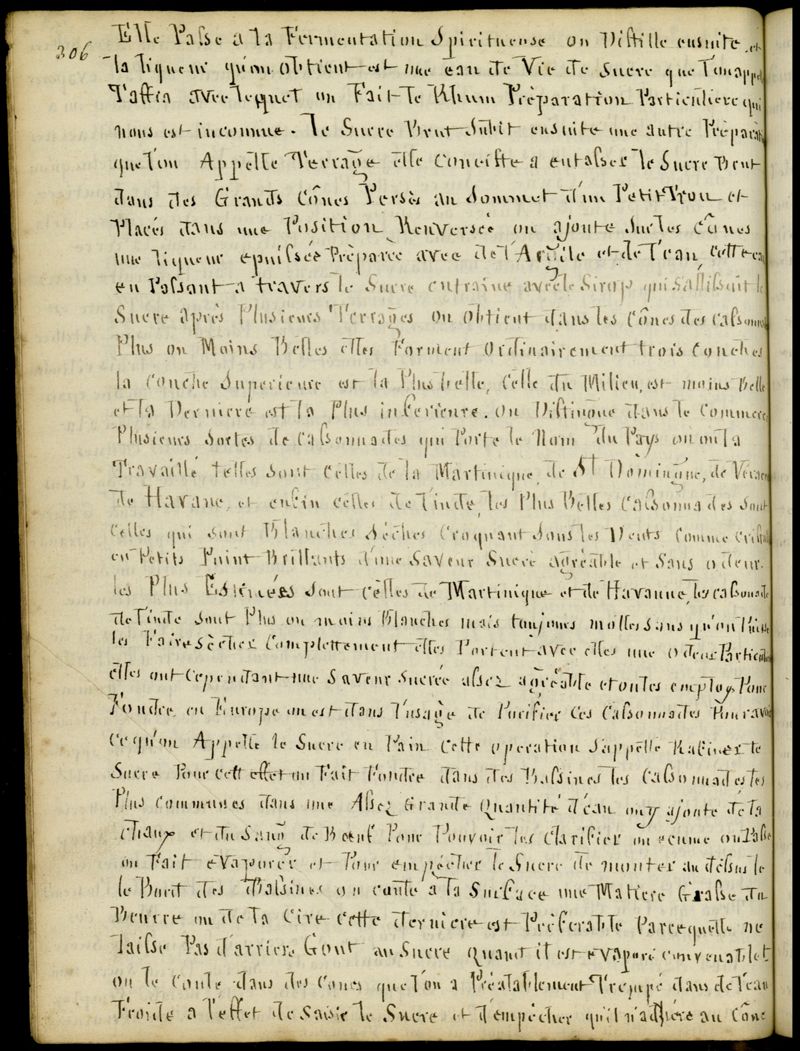 306
Elle Passe a la Fermentation Spirituense on Distille ensuite et
la liqueur qu'on obtient est une eau de Vie de Sucre que l'on appel
Taffia avec lequel on Fait le Rhum Préparation Particuliere qui
nous est inconnue. le Sucre Brut Subit ensuite une autre Préparat
que l'on Appelle Terrage elle Consiste a entasser le Sucre Brut
dans des Grands Cônes Persés au Sommet d'un Petit Trou et
Placés dans une Position Renversée on ajoute sur les Cônes
une liqueur epaissée Préparée avec de l'Argile et de l'eau, cette eau
en Passant a travers le Sucre entraine avec le Sirop qui sallissait le
Sucre après Plusieurs Terrages on obtient dans les Cônes des Cassonnad
Plus ou Moins Belles elles Forment Ordinairement trois Couches
la Couche Superieure est la Plus belle, Celle du Milieu, est moins Belle
et la Derniere est la Plus inferieure. on Distingue dans le Commerce
Plusieurs Sortes de Cassonnades qui Porte le Nom du Pays ou on la
Travaillé telles sont Celles de la Martinique, de St Domingue, de
de Havane, et enfin celles de l'inde, les Plus Belles Cassonnades sont
Celles qui sont Blanches Sèches Croquant Sous les Dents Comme Cristal
en Petits Point Brillants d'une Saveur Sucré agréable et Sans odeur.
les Plus Estimées sont Celles de Martinique et de Havanne, les cassonade
de l'inde sont Plus ou moins Blanches mais toujours molles sans qu'on Puisse
les Faire Sècher Complettement elles Portent avec elles une odeur Particul
elles ont Cependant une Saveur Sucrée assez agréable et on les employ Pour
Fondre, en Europe on est dans l'usage de Purifier Ces Cassonnades Pour avoir
Ce qu'on Appelle le Sucre en Pain Cette operation S'appelle Rafiner le
Sucre Pour cett effet on Fait Fondre dans des Bassines les Cassonnades les
Plus Communes dans une Assez Grande Quantité d'eau on y ajoute de la
Chaux et du Sang de Bœuf Pour Pouvoir les Clarifier on ecume on Passe
on Fait evaporer et Pour empêcher le Sucre de monter au dessus le
le Bord des Bassines on coule a la Surface une Matiere Grasse du
Beurre ou de la Cire Cette derniere est Préferable Parcequelle ne
laisse Pas d'arriere Gout au Sucre quand il est evaporé convenablet
on le Coule dans des Cones que l'on a Préalablement Trempé dans de l'eau
Froide a l'effet de Saisir le Sucre et d'empêcher qu'il n'adhère au Cone